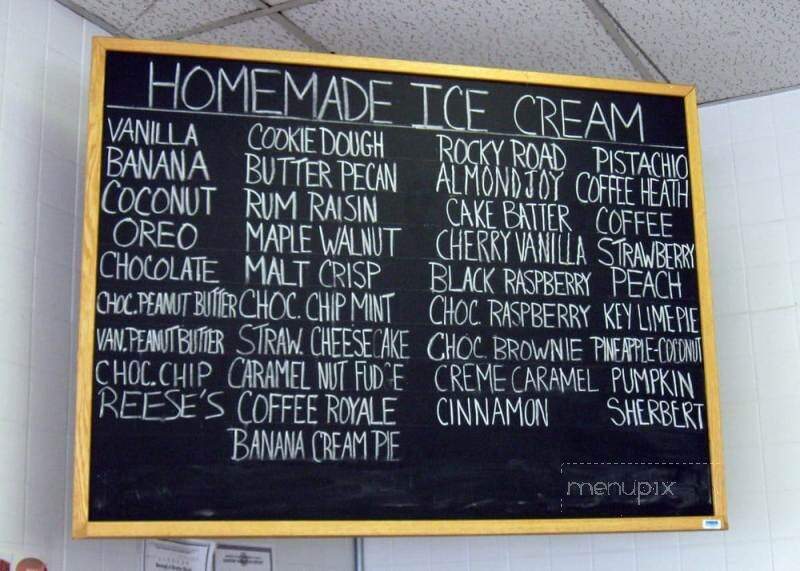 HOMEMADE ICE CREAM
VANILLA
BANANA
COCONUT
OREO
CHOCOLATE
CHOC. PEANUT BUTTER
VAN. PEANUT BUTTER
CHOC. CHIP
REESE'S
COOKIE DOUGH
BUTTER PECAN
RUM RAISIN
MAPLE WALNUT
MALT CRISP
CHOC. CHIP MINT
STRAW. CHEESECAKE
CARAMEL NUT FUDGE
COFFEE ROYALE
BANANA CREAM PIE
ROCKY ROAD
ALMOND JOY
CAKE BATTER
CHERRY VANILLA
BLACK RASPBERRY
CHOC. RASPBERRY
CHOC. BROWNIE
CREME CARAMEL
CINNAMON
PISTACHIO
COFFEE HEATH
COFFEE
STRAWBERRY
PEACH
KEY LIME PIE
PINEAPPLE-COCONUT
PUMPKIN
SHERBERT
menupix